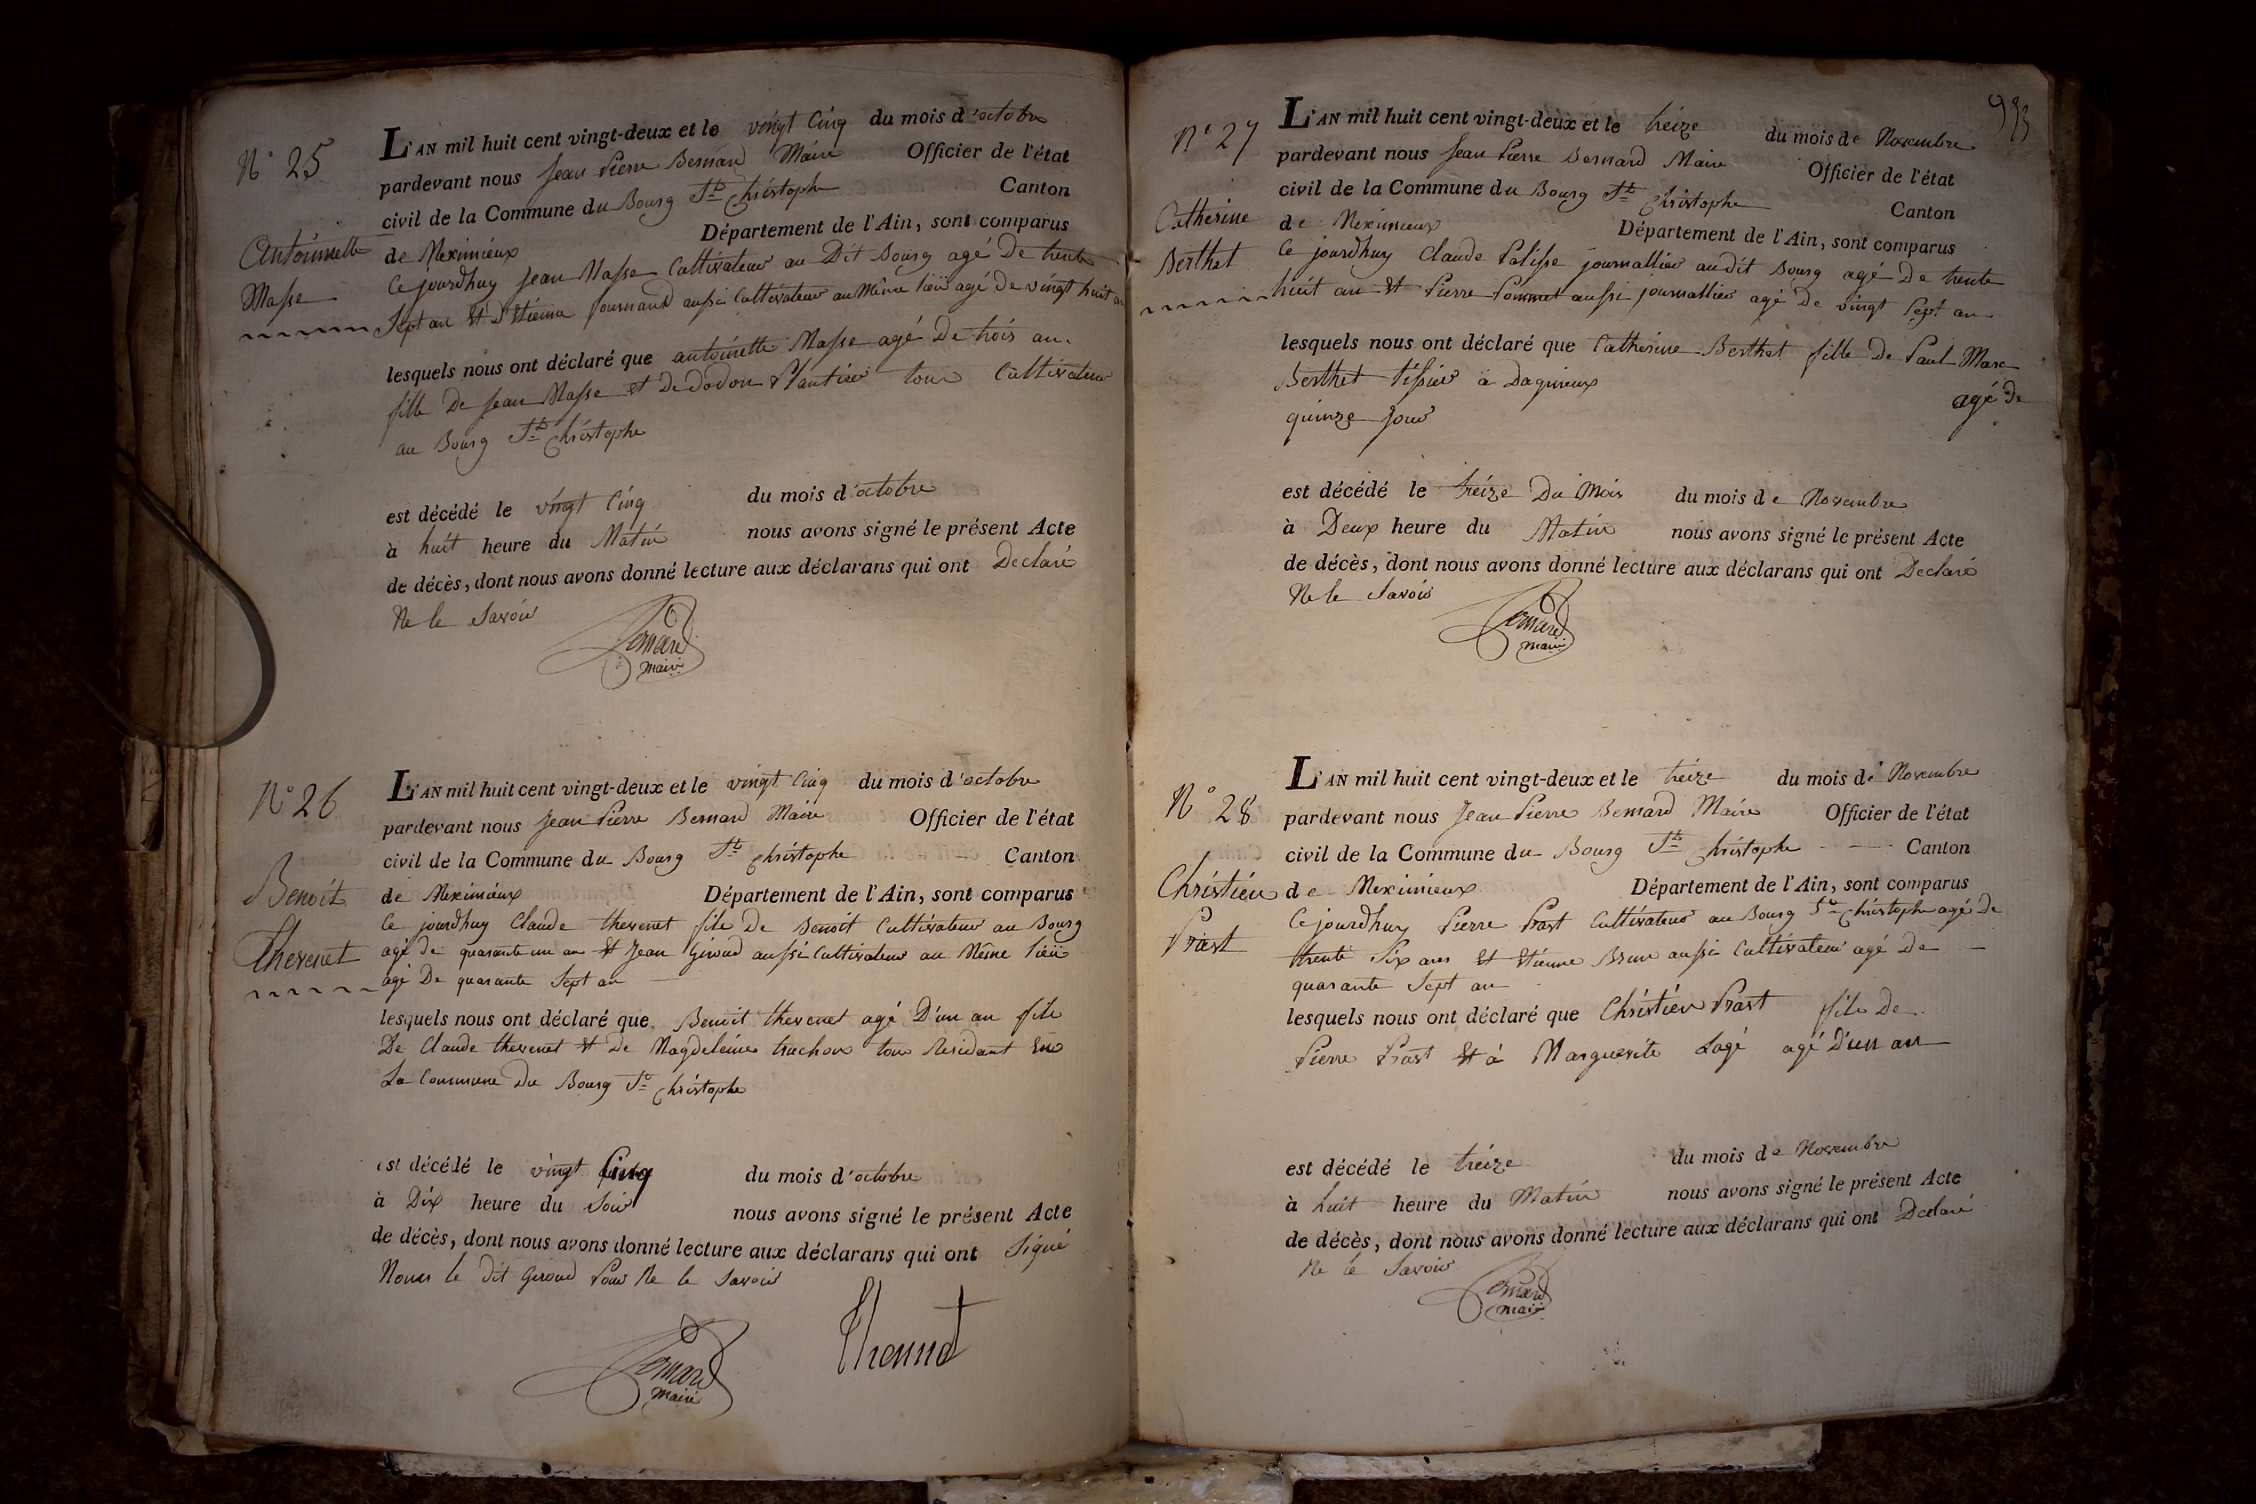 N° 25
Antoinette
Masse
L'AN mil huit cent vingt-deux et le vingt Cinq du mois d'octobre
pardevant nous Jean Pierre Bernard Maire Officier de l'état
civil de la Commune du Bourg St Christophe Canton
de Meximieux Département de l'Ain, sont comparus
Ce jourdhuy Jean Masse Cultivateur au Dit Bourg agé De trente
Sept an Et D'Etienne Journand aussi Cultivateur au Même lieu agé de vingt huit an
lesquels nous ont déclaré que antoinette Masse agé De trois an.
fille De Jean Masse et De Dodon Plantier tous Cultivateur
au Bourg St Christophe
est décédé le vingt Cinq du mois d'octobre
à huit heure du Matin nous avons signé le présent Acte
de décès, dont nous avons donné lecture aux déclarans qui ont Declaré
Ne le Savoir
Bernard
maire
N° 26
Benoit
thevenet
L'AN mil huit cent vingt-deux et le vingt Cinq du mois d'octobre
pardevant nous Jean Pierre Bernard Maire Officier de l'état
civil de la Commune du Bourg St Christophe Canton
de Meximieux Département de l'Ain, sont comparus
Ce jourdhuy Claude thevenet fils De Benoit Cultivateur au Bourg
agé de quarante un an Et Jean Giroud aussi Cultivateur au Même lieu
agé De quarante Sept an
lesquels nous ont déclaré que Benoit thevenet agé D'un an fils
De Claude thevenet Et De Magdeleine trachon tous Residant En
La Commune Du Bourg St Christophe
est décédé le vingt Cinq du mois d'octobre
à Dix heure du Soir nous avons signé le présent Acte
de décès, dont nous avons donné lecture aux déclarans qui ont Signé
Nonus le Dit Giroud Pour Ne le Savoir
Bernard
maire
Thevenet
933
N° 27
Catherine
Berthet
L'AN mil huit cent vingt-deux et le treize du mois de Novembre
pardevant nous Jean Pierre Bernard Maire Officier de l'état
civil de la Commune du Bourg St Christophe Canton
de Meximieux Département de l'Ain, sont comparus
Ce jourdhuy Claude Palisse journallier audit Bourg agé De trente
huit an Et Pierre Pommet aussi journallier agé De vingt Sept an
lesquels nous ont déclaré que Catherine Berthet fille De Paul Marc
Berthet tissier à Dagnieux agé de
quinze jour
est décédé le treize Du Mois du mois de Novembre
à Deux heure du Matin nous avons signé le présent Acte
de décès, dont nous avons donné lecture aux déclarans qui ont Declaré
Ne le Savoir
Bernard
maire
N° 28
Christien
Prast
L'AN mil huit cent vingt-deux et le treize du mois de Novembre
pardevant nous Jean Pierre Bernard Maire Officier de l'état
civil de la Commune du Bourg St Christophe Canton
de Meximieux Département de l'Ain, sont comparus
Ce jourdhuy Pierre Prast Cultivateur au Bourg St Christophe agé De
trente Six ans Et Etienne Brun aussi Cultivateur agé De
quarante Sept an
lesquels nous ont déclaré que Christien Prast fils De
Pierre Prast Et à Marguerite Lagé agé D'un an
est décédé le treize du mois de Novembre
à huit heure du Matin nous avons signé le présent Acte
de décès, dont nous avons donné lecture aux déclarans qui ont Declaré
Ne le Savoir
Bernard
maire